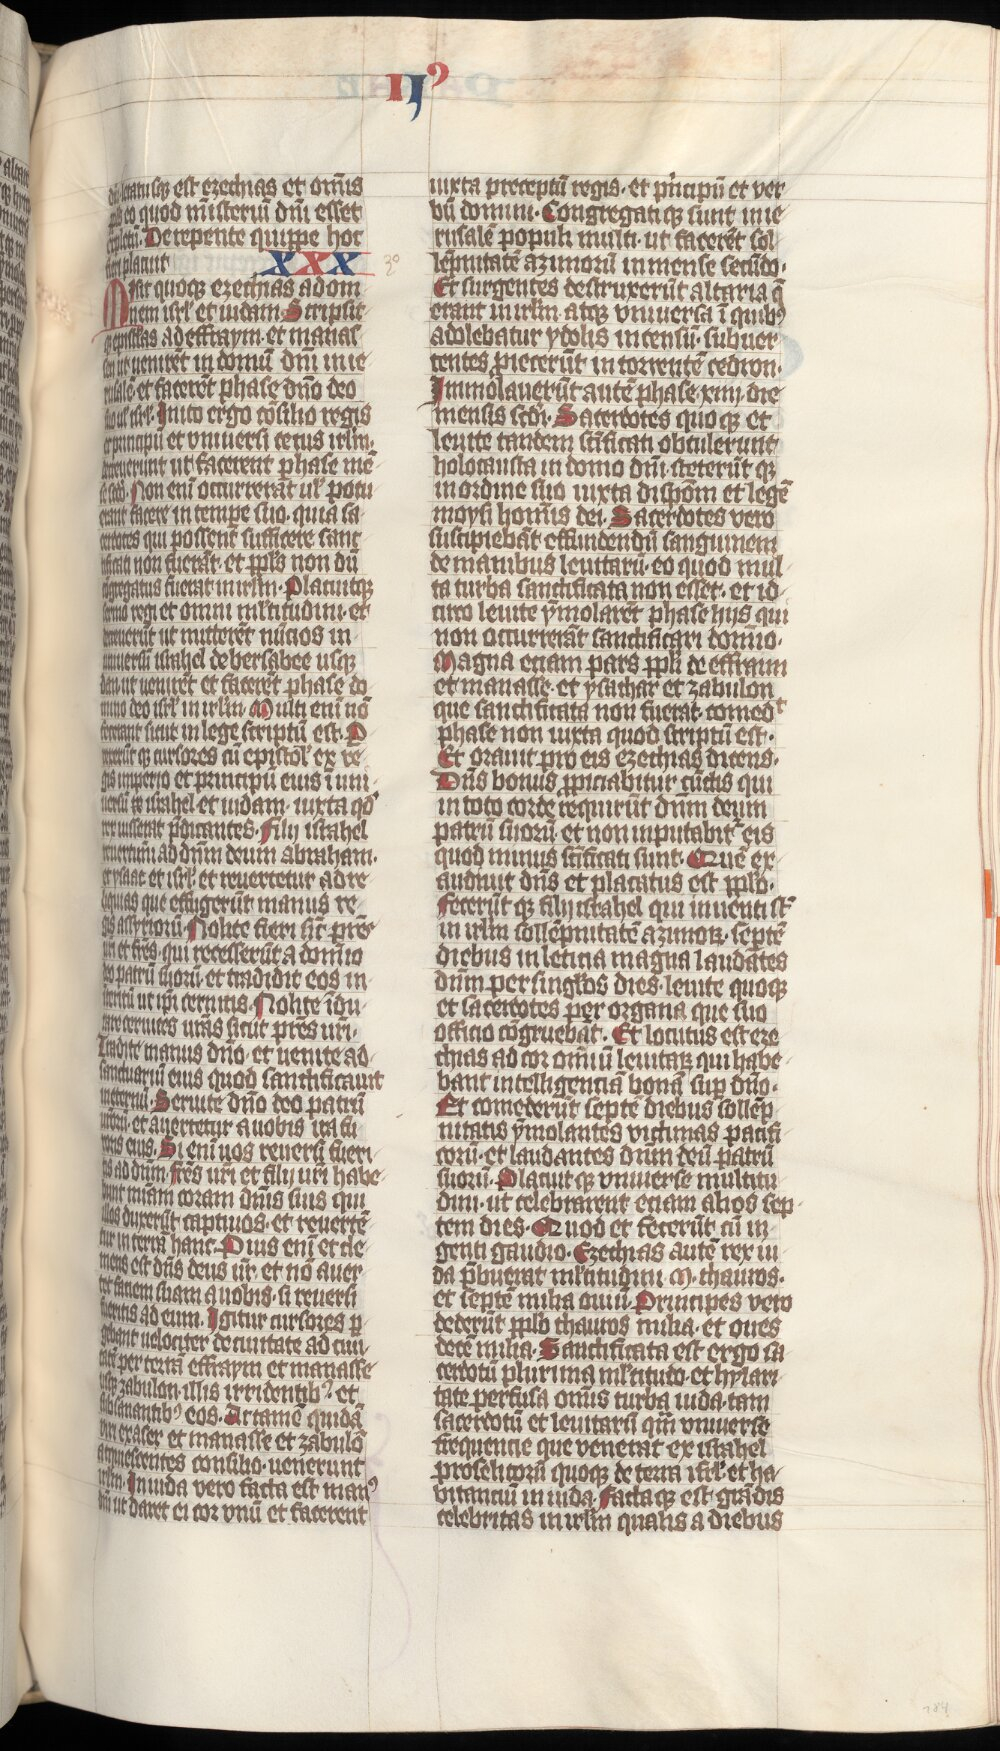 IIꝰ
letatusqꝫ est ezechias et om̄is
eo quod mīsteriū dn̄i esset
expletū. De repente quippe hoc
fieri placuit XXX 30
Misit quoqꝫ ezechias ad om
nem isrl̄ et iudam. Scripsit
qꝫ epistlas ad effraym et manas
sen ut venirēt in domū dn̄i in ie
rusalē et facerēt phase dn̄o deo
isrl̄. Inito ergo cōsilio regis
et principū et vniuersi cetus irl̄m
decreuerunt ut facerent phase mē
se scd̄o. Non enī occurrerāt ul̄ potu
erant facere in tempe suo. quia sa
cerdotes qui possent sufficere sanc
tificati non fuerāt. et ppl̄s non dū
cōgregatus fuerat in irl̄m. Placuitqꝫ
sermo regi et omni ml̄titudini. et
decreuerūt ut mitterēt nūcios in
vniuersū israhel de bersabee usqꝫ
dan ut venirēt et facerēt phase do
mino deo isrl̄ in irl̄m. Multi enī nō
fecerant sicut in lege scriptū est. P
rexerūt qꝫ cursores cū epistol̄ ex re
gis imperio et principū eius ī uni
uersū israhel et iudam. iuxta qd̄
rex iusserat p̄dicantes. Filij israhel
reuertimī ad dn̄m deum abraham.
et ysaac et isrl̄. et reuertetur ad re
liquias que effugerūt manus re
gis assyriorū. Nolite fieri sic̄ pr̄es
vr̄i et fr̄es. qui recesserūt a domīo
deo patrū suorū. et tradidit eos in
interitū ut ip̄i cernitis. Nolite īdu
rare ceruices vr̄as sicut pr̄es vr̄i.
Tradite manus dn̄o. et uenite ad
sanctuariū eius quod sanctificauit
ineternū. Seruite dn̄o deo patrū
vr̄orū. et auertetur a uobis ira fu
roris eius. Si enī uos reuersi fueri
tis ad dn̄m. fr̄es vr̄i et filij vr̄i habe
bunt mīam coram dn̄is suis qui
illos duxerūt captiuos. et reuertē
tur in terrā hanc. Pius enī et cle
mens est dn̄s deus vr̄. et nō auer
tet faciem suam a uobis. si reuersi
fueritis ad eum. Igitur cursores p
gebant uelociter de ciuitate ad ciui
tatē per terrā effraym et manasse
usqꝫ zabulon. illis irridentibꝰ. et
subsanantibꝰ eos. Attamē quidā
viri ex aser et manasse et zabulō
acquiescentes consilio. uenerunt
irl̄m. In iuda vero facta est manꝰ
dn̄i ut daret ei cor vnū et facerent
iuxta preceptū regis. et p̄ncipū et ver
bū domini. Congregatiqꝫ sunt in ie
rusalē populi multi. ut facerēt sol
lēpnitatē azimorū in mense secūdo.
Et surgentes destruxerūt altaria q̄
erant in irl̄m. atqꝫ vniuersa ī quibꝰ
adolebatur ydolis incensū. subuer
tentes proiecerūt in torrentē cedron.
Immolauerūt autē phase. xiiij. die
mensis scd̄i. Sacerdotes quoqꝫ et
leuite tandem sc̄ificati obtulerunt
holocausta in domo dn̄i. steterūt qꝫ
in ordine suo iuxta dispōm et legē
moysi hom̄is dei. Sacerdotes vero
suscipiebāt effundendū sanguinem
de manibus leuitarū. eo quod mul
ta turba sanctificata non esset. et id
circo leuite ymolarēt phase hijs qui
non occurrerāt sanctificari domīo.
Magna eciam pars ppl̄i de effraim
et manasse. et ysachar et zabulon
que sanctificata non fuerat. comedᵗ
phase non iuxta quod scriptū est.
Et orauit pro eis ezechias dicens.
Dn̄s bonus ꝓpiciabitur cūctis qui
in toto corde requirūt dn̄m deum
patrū suorū. et non inputabit᷑ eis
quod minus sc̄ificati sunt. Quē ex
audiuit dn̄s et placatus est ppl̄o.
Fecerūt qꝫ filij israhel qui inuenti st̄
in irl̄m sollēpnitatē azimoꝝ. septē
diebus in leticia magna laudātes
dn̄m per singl̄os dies. leuite quoqꝫ
et sacerdotes per organa que suo
officio cōgruebāt. Et locutus est eze
chias ad cor om̄iū leuitaꝝ qui habe
bant intelligenciā bonā sup dn̄o.
Et comederūt septē diebus sollēp
nitatis ymolantes victimas pacifi
corū. et laudantes dn̄m deū patrū
suorū. Placuit qꝫ vniuerse multitu
dini. ut celebrarent eciam alios sep
tem dies. Quod et fecerūt cū in
genti gaudio. Ezechias autē rex iu
da p̄buerat ml̄titudini. M. thauros.
et septē milia ouiū. Principes vero
dederūt ppl̄o thauros milia. et oues
decē milia. Sanctificata est ergo sa
cerdotū plurima ml̄titudo. et hylari
tate perfusa om̄is turba iuda. tam
sacerdotū et leuitarū qm̄ vniuerse
frequencie que venerat ex israhel
proselitorū quoqꝫ de terra isrl̄. et ha
bitanciū in iuda. Factaqꝫ est grādis
celebritas in irl̄m qualis a diebus
184